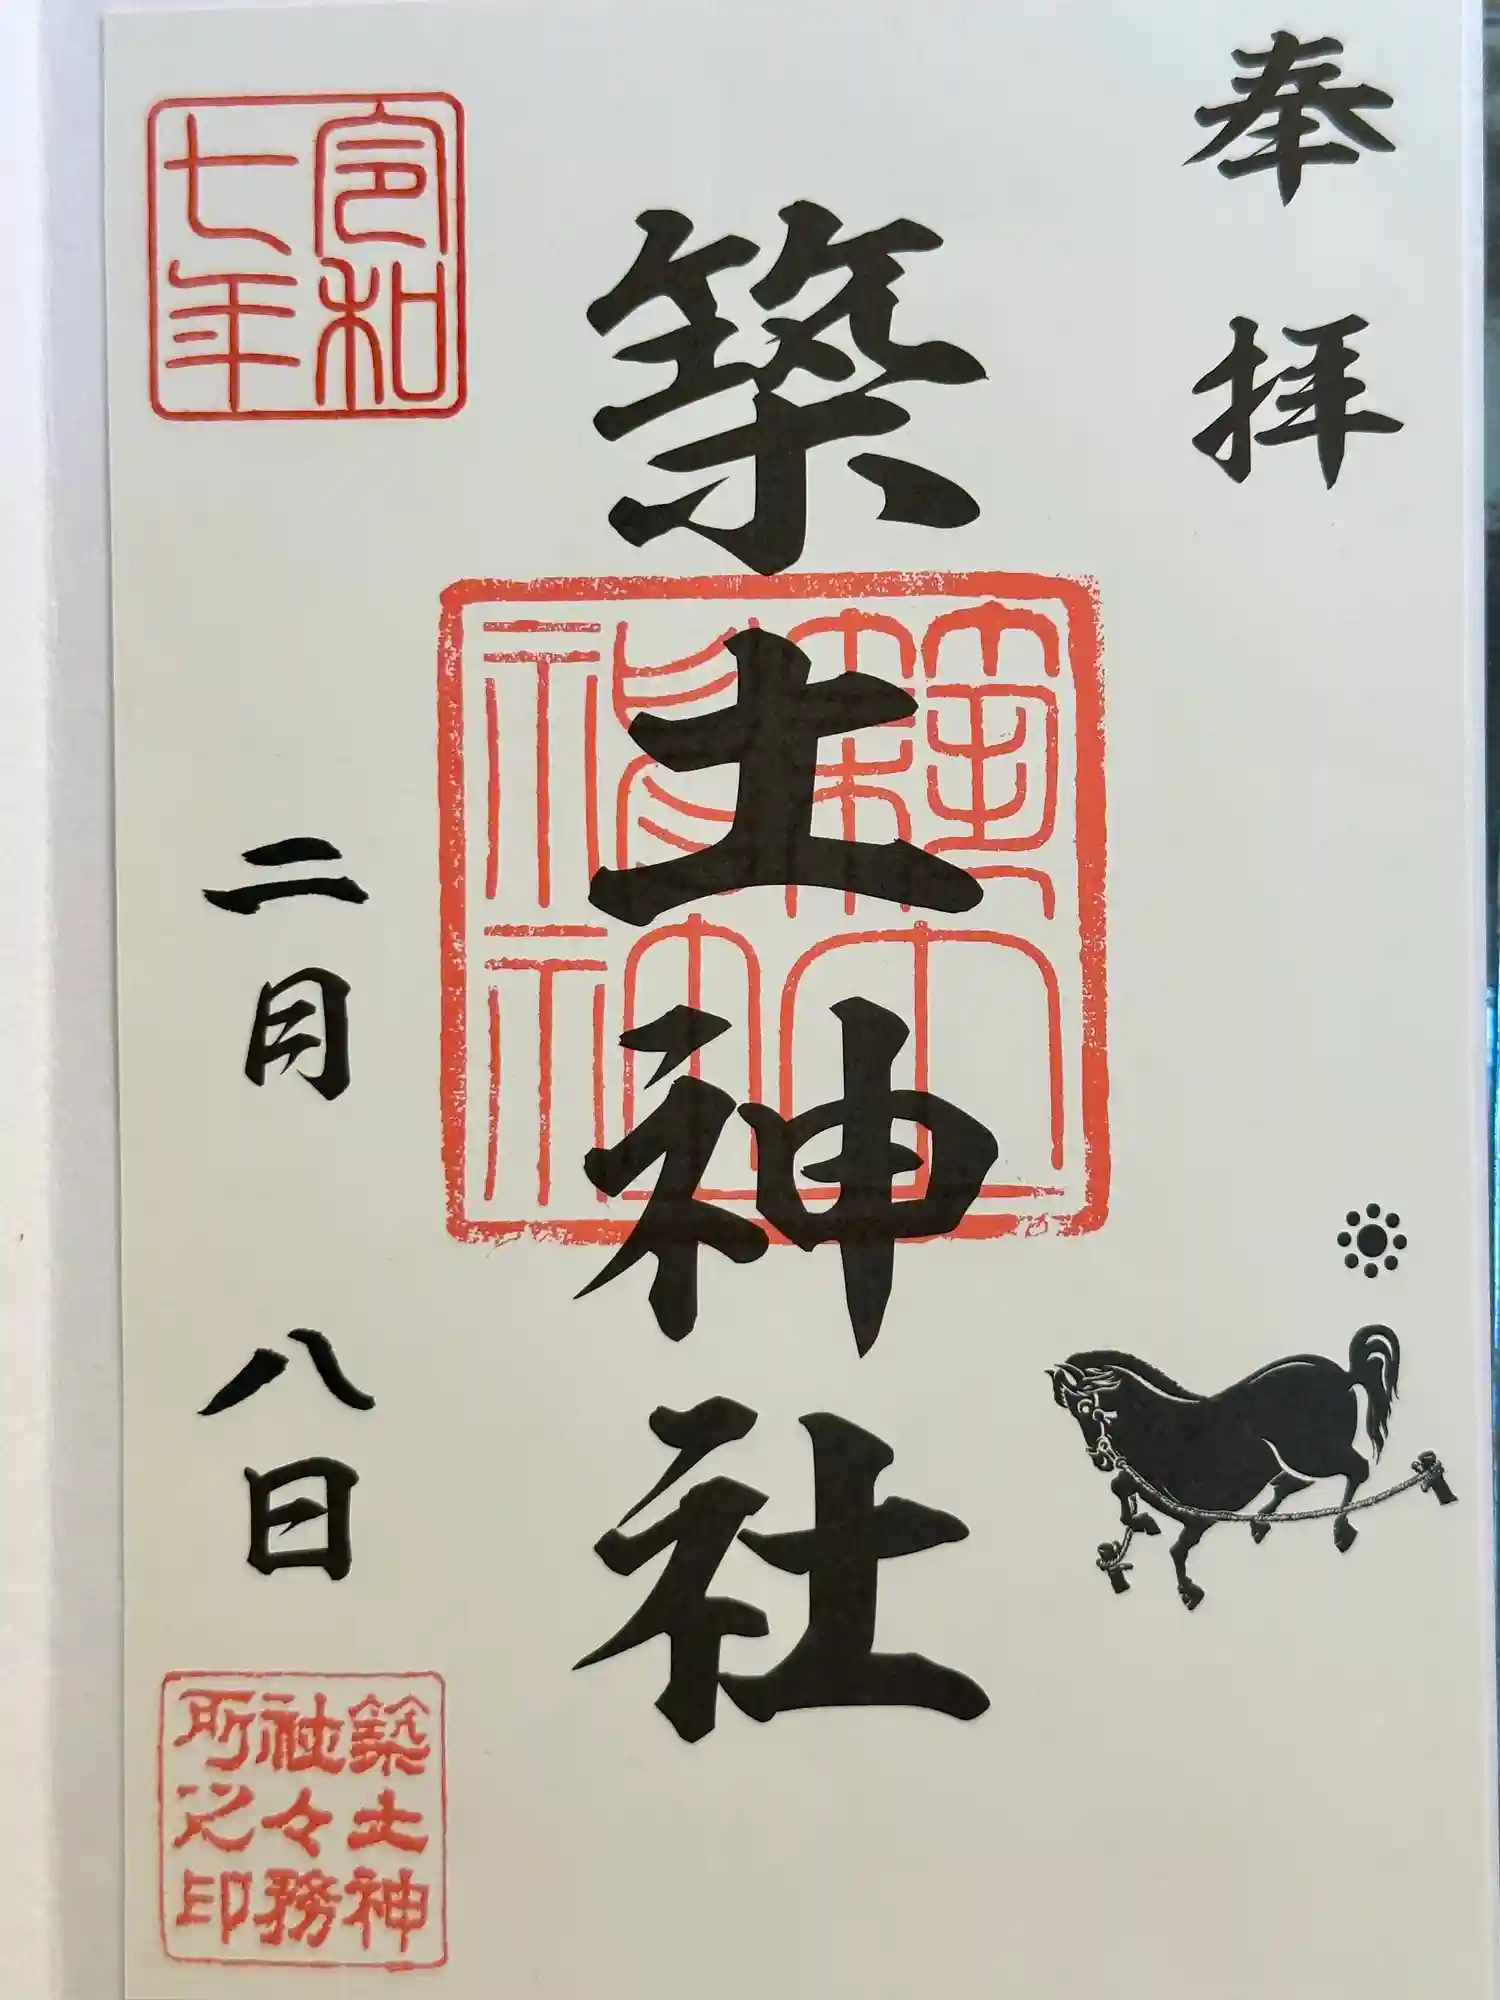 奉拝
築土神社
令和
七年
二月 八日
築土神
社々務
所之印